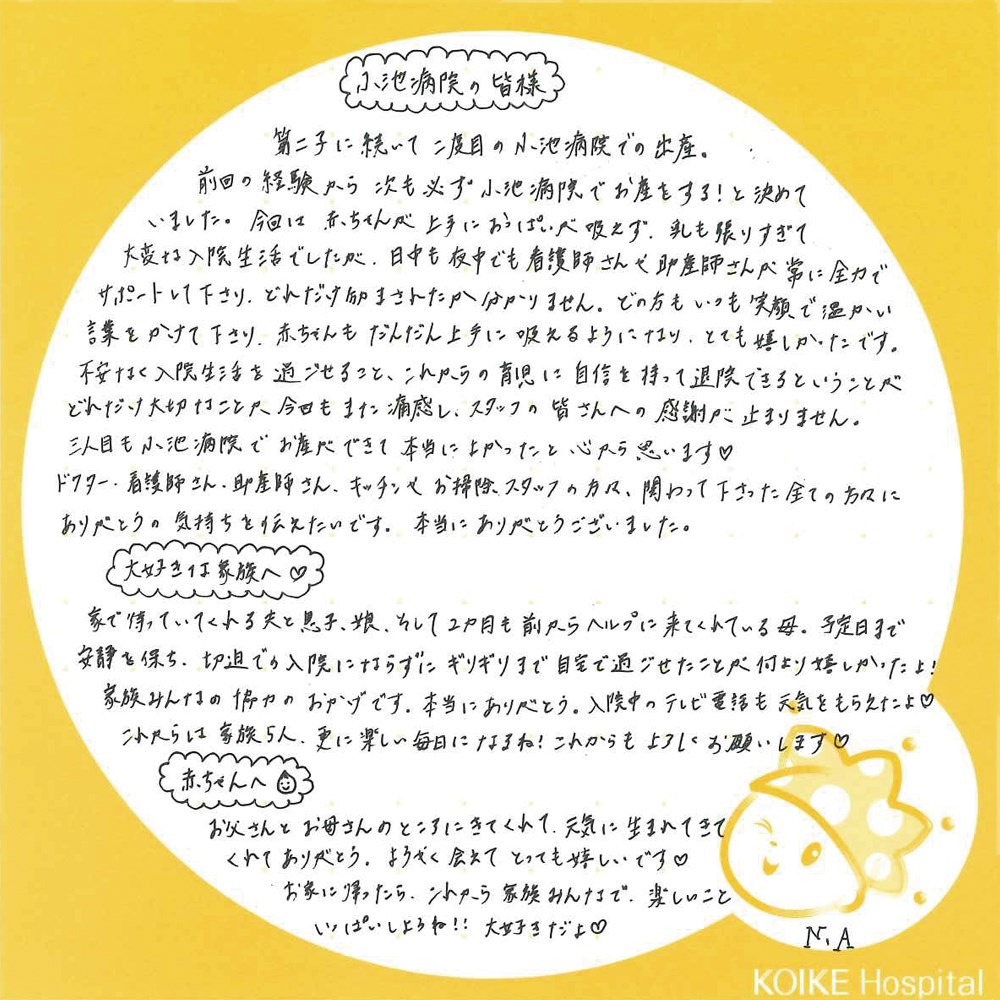 小池病院の皆様
第二子に続いて二度目の小池病院での出産。
前回の経験から次も必ず小池病院でお産をする！と決めて
いました。今回は赤ちゃんが上手におっぱいが吸えず、乳も張りすぎて
大変な入院生活でしたが、日中も夜中でも看護師さんや助産師さんが常に全力で
サポートして下さり、どれだけ励まされたか分かりません。どの方もいつも笑顔で温かい
言葉をかけて下さり、赤ちゃんもだんだん上手に吸えるようになり、とても嬉しかったです。
不安なく入院生活を過ごせること、これからの育児に自信を持って退院できるということが
どれだけ大切なことか今回もまた痛感し、スタッフの皆さんへの感謝が止まりません。
三人目も小池病院でお産ができて本当によかったと心から思います♡
ドクター・看護師さん・助産師さん、キッチンやお掃除スタッフの方々、関わって下さった全ての方々に
ありがとうの気持ちを伝えたいです。本当にありがとうございました。
大好きな家族へ♡
家で待っていてくれる夫と息子、娘、そして2ヵ月も前からヘルプに来てくれている母。予定日まで
安静を保ち、切迫での入院にならずにギリギリまで自宅で過ごせたことが何より嬉しかったよ！
家族みんなの協力のおかげです。本当にありがとう。入院中のテレビ電話も元気をもらえたよ♡
これからは家族5人、更に楽しい毎日になるね！これからもよろしくお願いします♡
赤ちゃんへ
お父さんとお母さんのところにきてくれて、元気に生まれてきて
くれてありがとう。ようやく会えてとっても嬉しいです♡
お家に帰ったら、これから家族みんなで、楽しいこと
いっぱいしようね！！大好きだよ♡
N.A
KOIKE Hospital